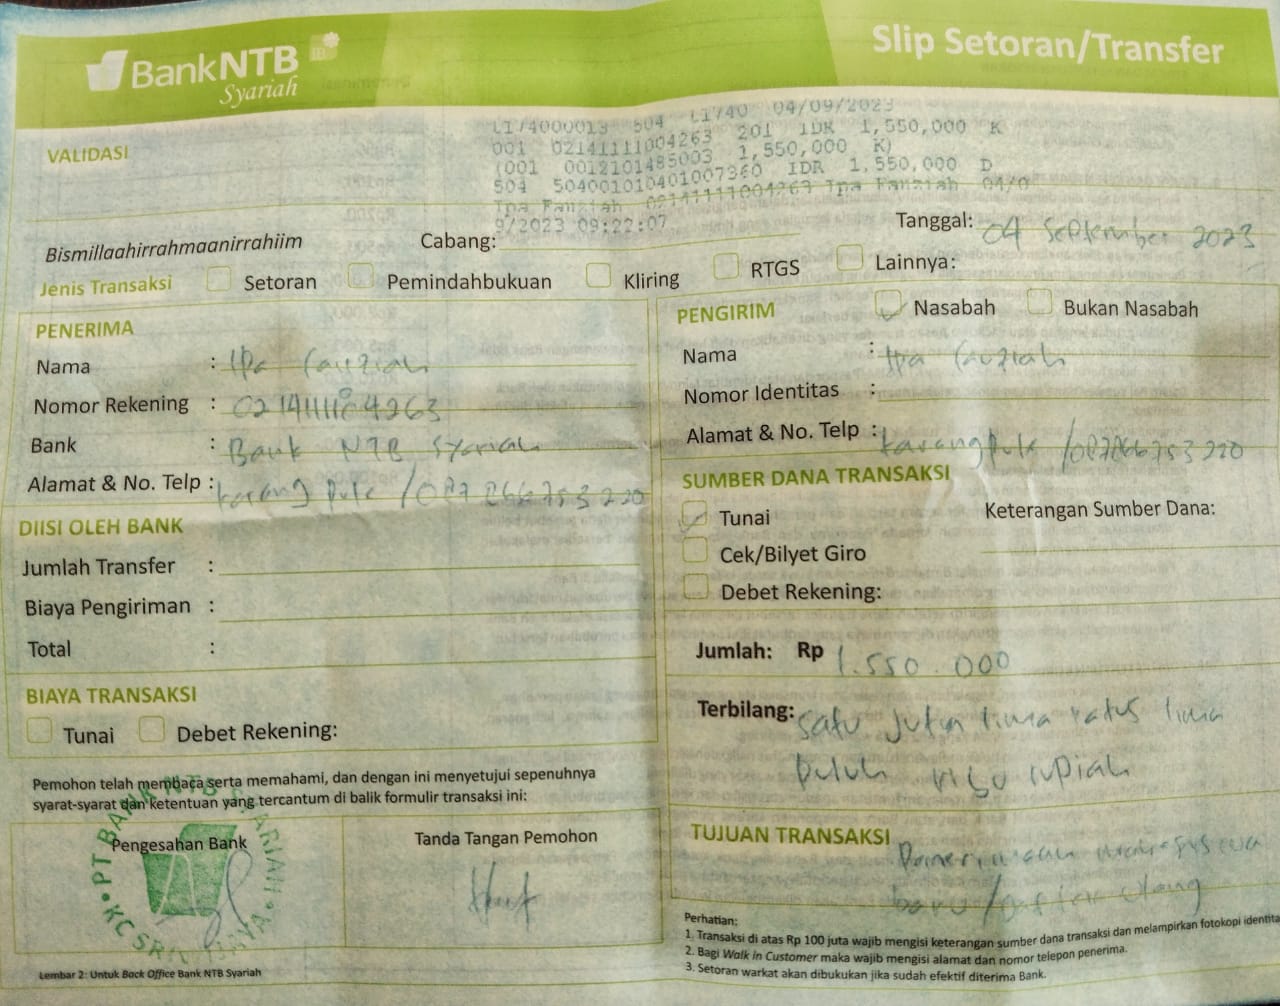 BankNTB
Syariah
Slip Setoran/Transfer
VALIDASI
LI74000013 504 LI740 04/09/2023
001 02141111004263 201 IDR 1,550,000 K
(001 0012101485003 1,550,000 K)
504 504001010401007360 IDR 1,550,000 D
Ipa Fauziah 02141111004263 Ipa Fauziah 04/0
9/2023 09:22:07
Bismillaahirrahmaanirrahiim
Cabang:
Tanggal: 04 September 2023
Jenis Transaksi Setoran Pemindahbukuan Kliring RTGS Lainnya:
PENERIMA
Nama : Ipa Fauziah
Nomor Rekening : 02141111004263
Bank : Bank NTB Syariah
Alamat & No. Telp : Karang Pule /087866753220
DIISI OLEH BANK
Jumlah Transfer :
Biaya Pengiriman :
Total :
BIAYA TRANSAKSI
Tunai Debet Rekening:
Pemohon telah membaca serta memahami, dan dengan ini menyetujui sepenuhnya
syarat-syarat dan ketentuan yang tercantum di balik formulir transaksi ini:
Pengesahan Bank
Tanda Tangan Pemohon
PT BANK NTB SYARIAH
KC SRIWIJAYA
Lembar 2: Untuk Back Office Bank NTB Syariah
PENGIRIM Nasabah Bukan Nasabah
Nama : Ipa Fauziah
Nomor Identitas :
Alamat & No. Telp : Karang Pule /087866753220
SUMBER DANA TRANSAKSI
Tunai
Keterangan Sumber Dana:
Cek/Bilyet Giro
Debet Rekening:
Jumlah: Rp 1.550.000
Terbilang: satu juta lima ratus lima
puluh ribu rupiah
TUJUAN TRANSAKSI Penerimaan mahasiswa
baru /daftar ulang
Perhatian:
1. Transaksi di atas Rp 100 juta wajib mengisi keterangan sumber dana transaksi dan melampirkan fotokopi identita
2. Bagi Walk in Customer maka wajib mengisi alamat dan nomor telepon penerima.
3. Setoran warkat akan dibukukan jika sudah efektif diterima Bank.